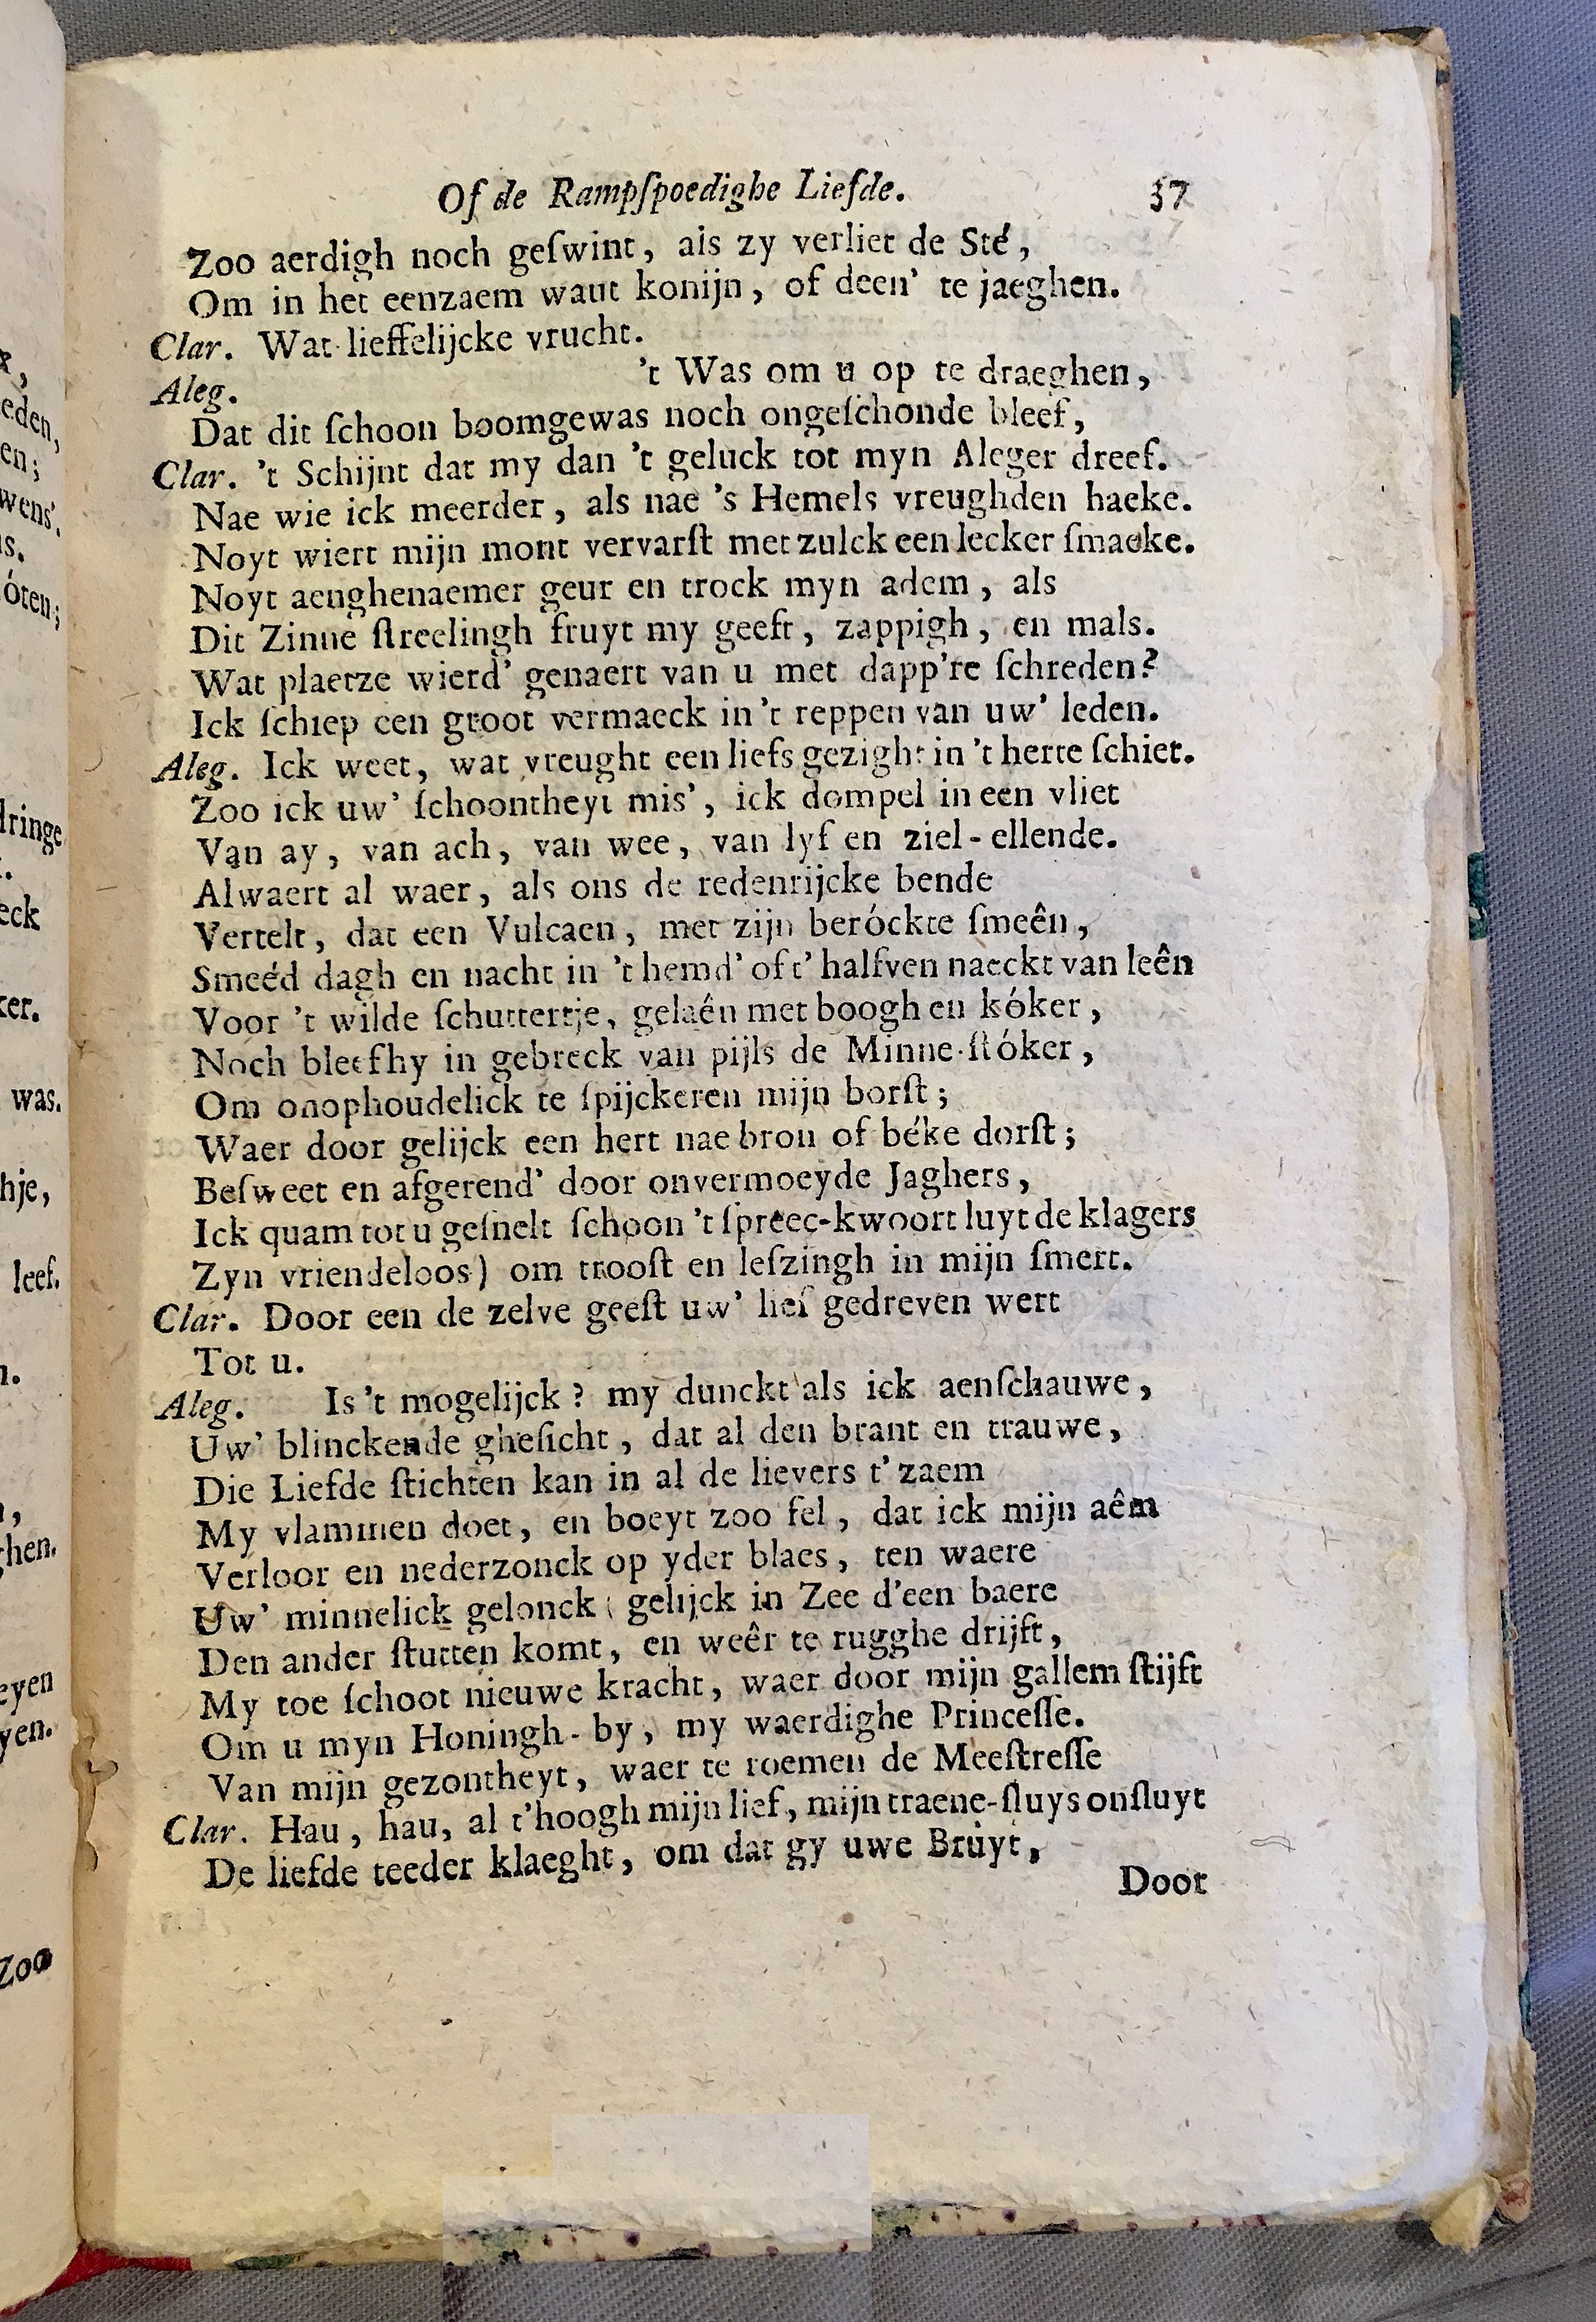 Of de Rampſpoedighe Liefde. 37
Zoo aerdigh noch geſwint, als zy verliet de Sté,
Om in het eenzaem waut konijn, of deen' te jaeghen.
Clar. Wat lieffelijcke vrucht.
Aleg. 't Was om u op te draeghen,
Dat dit ſchoon boomgewas noch ongeſchonde bleef,
Clar. 't Schijnt dat my dan 't geluck tot myn Aleger dreef.
Nae wie ick meerder, als nae 's Hemels vreughden haeke.
Noyt wiert mijn mont vervarſt met zulck een lecker ſmaeke.
Noyt aenghenaemer geur en trock myn adem, als
Dit Zinne ſtreelingh fruyt my geeft, zappigh, en mals.
Wat plaetze wierd' genaert van u met dapp're ſchreden?
Ick ſchiep een groot vermaeck in 't reppen van uw' leden.
Aleg. Ick weet, wat vreught een liefs gezight in 't herte ſchiet.
Zoo ick uw' ſchoontheyt mis', ick dompel in een vliet
Van ay, van ach, van wee, van lyf en ziel-ellende.
Alwaert al waer, als ons de redenrijcke bende
Vertelt, dat een Vulcaen, met zijn beróckte ſmeên,
Smeéd dagh en nacht in 't hemd' of t' halfven naeckt van leên
Voor 't wilde ſchuttertje, gelaén met boogh en kóker,
Noch bleef hy in gebreck van pijls de Minne-ſtóker,
Om onophoudelick te ſpijckeren mijn borſt;
Waer door gelijck een hert nae bron of béke dorſt;
Beſweet en afgerend' door onvermoeyde Jaghers,
Ick quam tot u geſnelt ſchoon 't ſpreec-kwoort luyt de klagers
Zyn vriendeloos) om trooſt en leſzingh in mijn ſmert.
Clar. Door een de zelve geeſt uw' lief gedreven wert
Tot u.
Aleg. Is 't mogelijck? my dunckt als ick aenſchauwe,
Uw' blinckende gheſicht, dat al den brant en trauwe,
Die Liefde ſtichten kan in al de lievers t' zaem
My vlammen doet, en boeyt zoo fel, dat ick mijn aêm
Verloor en nederzonck op yder blaes, ten waere
Uw' minnelick gelonck ( gelijck in Zee d'een baere
Den ander ſtutten komt, en weêr te rugghe drijft,
My toe ſchoot nieuwe kracht, waer door mijn gallem ſtijft
Om u myn Honingh-by, my waerdighe Princeſſe.
Van mijn gezontheyt, waer te roemen de Meeſtreſſe
Clar. Hau, hau, al t'hoogh mijn lief, mijn traene-ſluys onſluyt
De liefde teeder klaeght, om dat gy uwe Bruyt,
Door